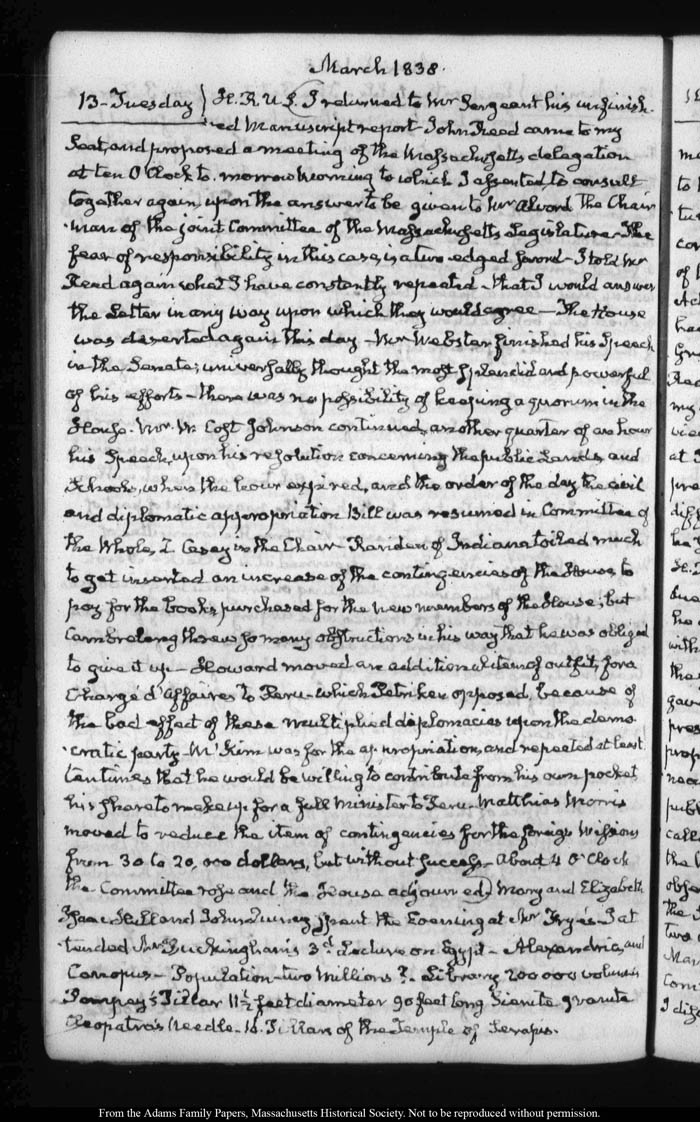 March 1838.
13-Tuesday } H. R. U. S. I returned to Mr Sergeant his unfinish-
ed Manuscript report - John Reed came to my
Seat, and proposed a meeting of the Massachusetts delegation
at ten O'Clock to-morrow Morning to which I assented, to consult
together again, upon the answer to be given to Mr Alvord the Chair-
man of the joint Committee of the Massachusetts Legislature - The
fear of responsibility in this case, is a two-edged sword - I told Mr
Reed again what I have constantly repeated - that I would answer
the Letter in any way upon which they would agree - The House
was deserted again this day - Mr Webster finished his Speech
in the Senate; universally thought the most splendid and powerful
of his efforts - there was no possibility of keeping a quorum in the
House. Mr Wm Cost Johnson continued, another quarter of an hour
his Speech, upon his resolution concerning the public Lands, and
Schools, when the hour expired, and the order of the day the civil
and diplomatic appropriation Bill was resumed in Committee of
the Whole, Z Casey in the Chair - Rariden of Indiana toiled much
to get inserted an increase of the contingencies of the House, to
pay for the books purchased for the new members of the House; but
Cambreleng threw so many obstructions in his way that he was obliged
to give it up - Howard moved an additional item of outfit, for a
Chargé d'Affaires to Peru - which Petriken opposed, because of
the bad effect of these multiplied diplomacies upon the demo-
cratic party - M'Kim was for the appropriation, and repeated at least
ten times that he would be willing to contribute from his own pocket
his share to make up for a full Minister to Peru - Matthias Morris
moved to reduce the item of contingencies for the foreign Missions
from 30 to 20,000 dollars, but without success - About 4 O'Clock
the Committee rose and the House adjourned) Mary and Elizabeth
Isaac Hull and John Quincy spent the Evening at Mr Frye's - I at-
tended Mr Buckingham's 3d Lecture on Egypt - Alexandria, and
Canopus - Population - two Millions ?. Library 200 000 volumes
Pompey's Pillar 11½ feet diameter 90 feet long Sienite granite
Cleopatra's Needle - Pillars of the Temple of Serapis.
From the Adams Family Papers, Massachusetts Historical Society. Not to be reproduced without permission.